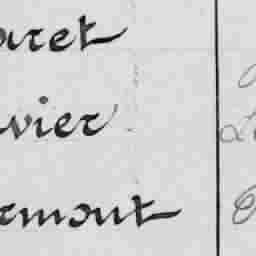 aret
vier
rmont